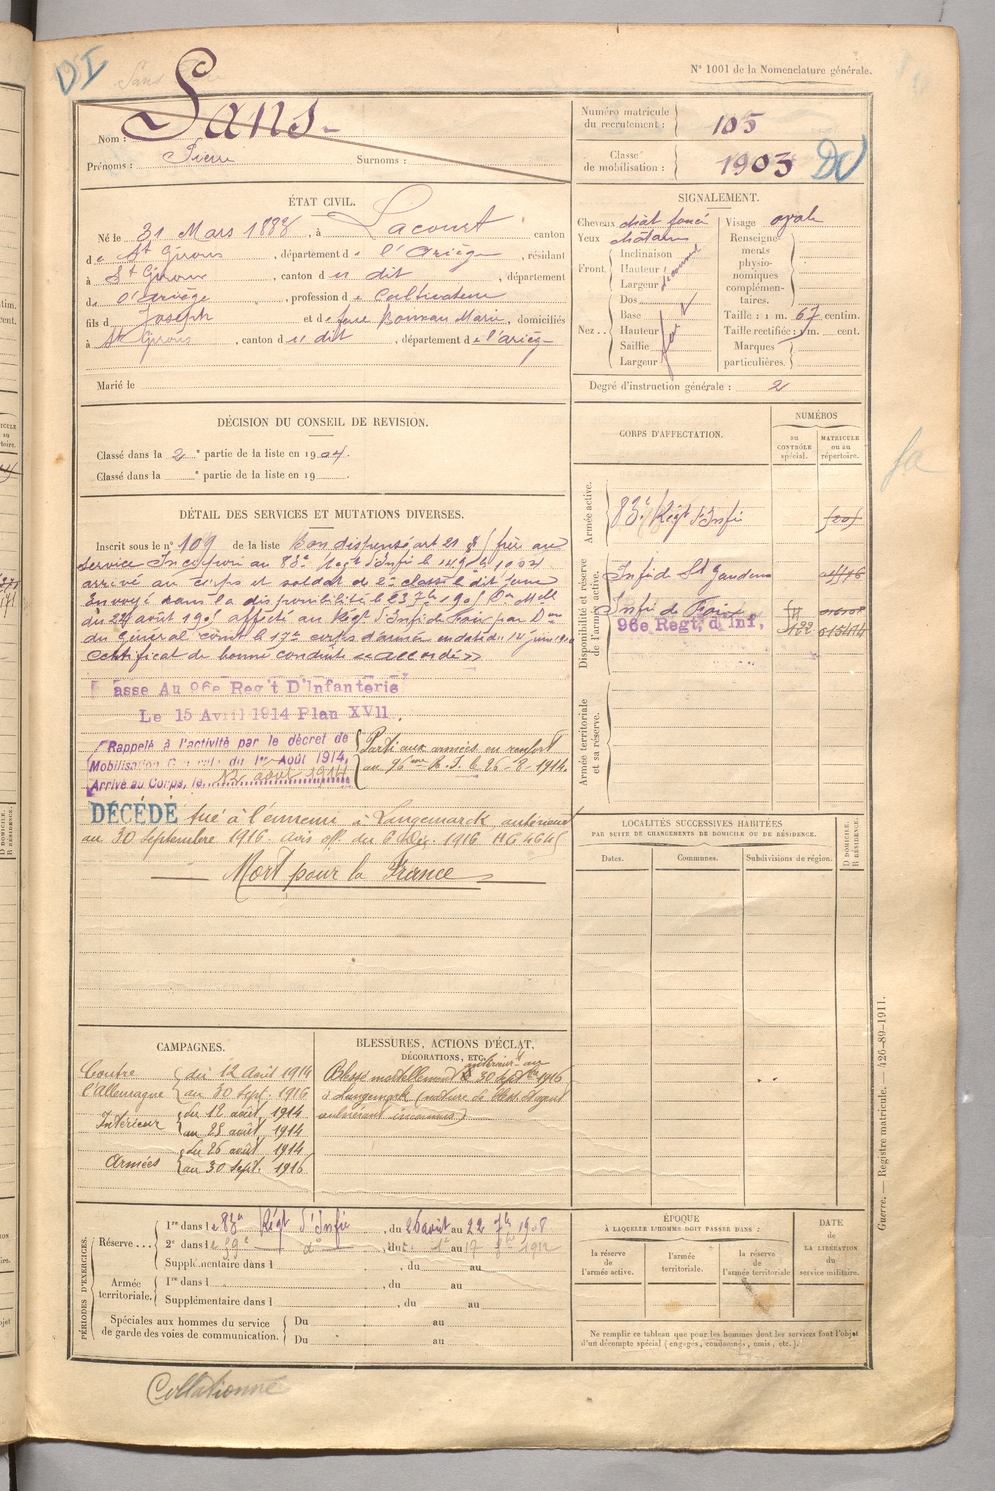 DI
N° 1001 de la Nomenclature générale.
Nom : Sans
Prénoms : Pierre Surnoms :
Numéro matricule du recrutement : 105
Classe de mobilisation : 1903
ÉTAT CIVIL.
Né le 31 Mars 1883, à Lacourt canton
de St Girons, département de l'Ariège, résidant
à St Girons, canton du dit, département
de l'Ariège, profession de Cultivateur
fils de Joseph et de feue Marie, domiciliés
à St Girons, canton du dit, département de l'Ariège
Marié le
SIGNALEMENT.
Cheveux chât foncé Visage ovale
Yeux châtains
Front. Inclinaison
Hauteur
Largeur
Nez.. Dos
Base
Hauteur
Saillie
Largeur
Renseignements physionomiques complémentaires.
Taille : 1 m. 67 centim.
Taille rectifiée : 1 m. cent.
Marques particulières.
Degré d'instruction générale : 2
DÉCISION DU CONSEIL DE REVISION.
Classé dans la 2e partie de la liste en 1904.
Classé dans la e partie de la liste en 19 .
CORPS D'AFFECTATION.
NUMÉROS
au CONTRÔLE spécial.
MATRICULE ou au répertoire.
Armée active.
83e Régt d'Infie
Disponibilité et réserve de l'armée active.
Infie de St Gaudens
Infie de Foix
96e Regt, d'Inf,
Armée territoriale et sa réserve.
DÉTAIL DES SERVICES ET MUTATIONS DIVERSES.
Inscrit sous le n° 109 de la liste Bon dispensé art 21 § (frère au
service Incorporé au 83e Régt d'Infie le 14 9bre 1904
arrivé au corps et soldat de 2e classe le dit jour
Envoyé dans la disponibilité le 23 7bre 1905 Don Melle
du août 1905 affecté au Régt d'Infie de Foix par Don
du Général Comt le 17e corps d'armée en date du 14 juin
Certificat de bonne conduite «accordé»
Passe Au 96e Reg't D'Infanterie
Le 15 Avril 1914 Plan XVII.
Rappelé à l'activité par le décret de
Mobilisation Générale du 1er Août 1914,
Arrivé au Corps, le 12 août 1914
Parti aux armées en renfort
au 96me R. I. le 26-8-1914.
DÉCÉDÉ tué à l'ennemi à Langemarck antérieurt
au 30 Septembre 1916. avis off. du 6 Déc. 1916
Mort pour la France
LOCALITÉS SUCCESSIVES HABITÉES
PAR SUITE DE CHANGEMENTS DE DOMICILE OU DE RÉSIDENCE.
Dates. Communes. Subdivisions de région.
D DOMICILE.
R RÉSIDENCE.
CAMPAGNES.
Contre l'Allemagne du 12 Août 1914
au 30 Sept. 1916
Intérieur du 12 août 1914
au 25 août 1914
Armées du 26 août 1914
au 30 Sept. 1916
BLESSURES, ACTIONS D'ÉCLAT,
DÉCORATIONS, ETC.
Blessé mortellement antérieurt au 30 Septbre 1916
à Langemark (nature de bless. et agent
vulnérant inconnus)
PÉRIODES D'EXERCICES.
Réserve... 1re dans le 83e Régt d'Infie, du 26 août au 22 7bre 1908
2e dans le 59e do, du 1er au 17 1912
Supplémentaire dans l , du au
Armée territoriale. 1re dans l , du au
Supplémentaire dans l , du au
Spéciales aux hommes du service de garde des voies de communication. Du au
Du au
ÉPOQUE
À LAQUELLE L'HOMME DOIT PASSER DANS :
la réserve de l'armée active.
l'armée territoriale.
la réserve de l'armée territoriale
DATE de LA LIBÉRATION du service militaire.
Ne remplir ce tableau que pour les hommes dont les services font l'objet
d'un décompte spécial (engagés, condamnés, omis, etc.).
Guerre. — Registre matricule. — 426-89-1911.
Collationné